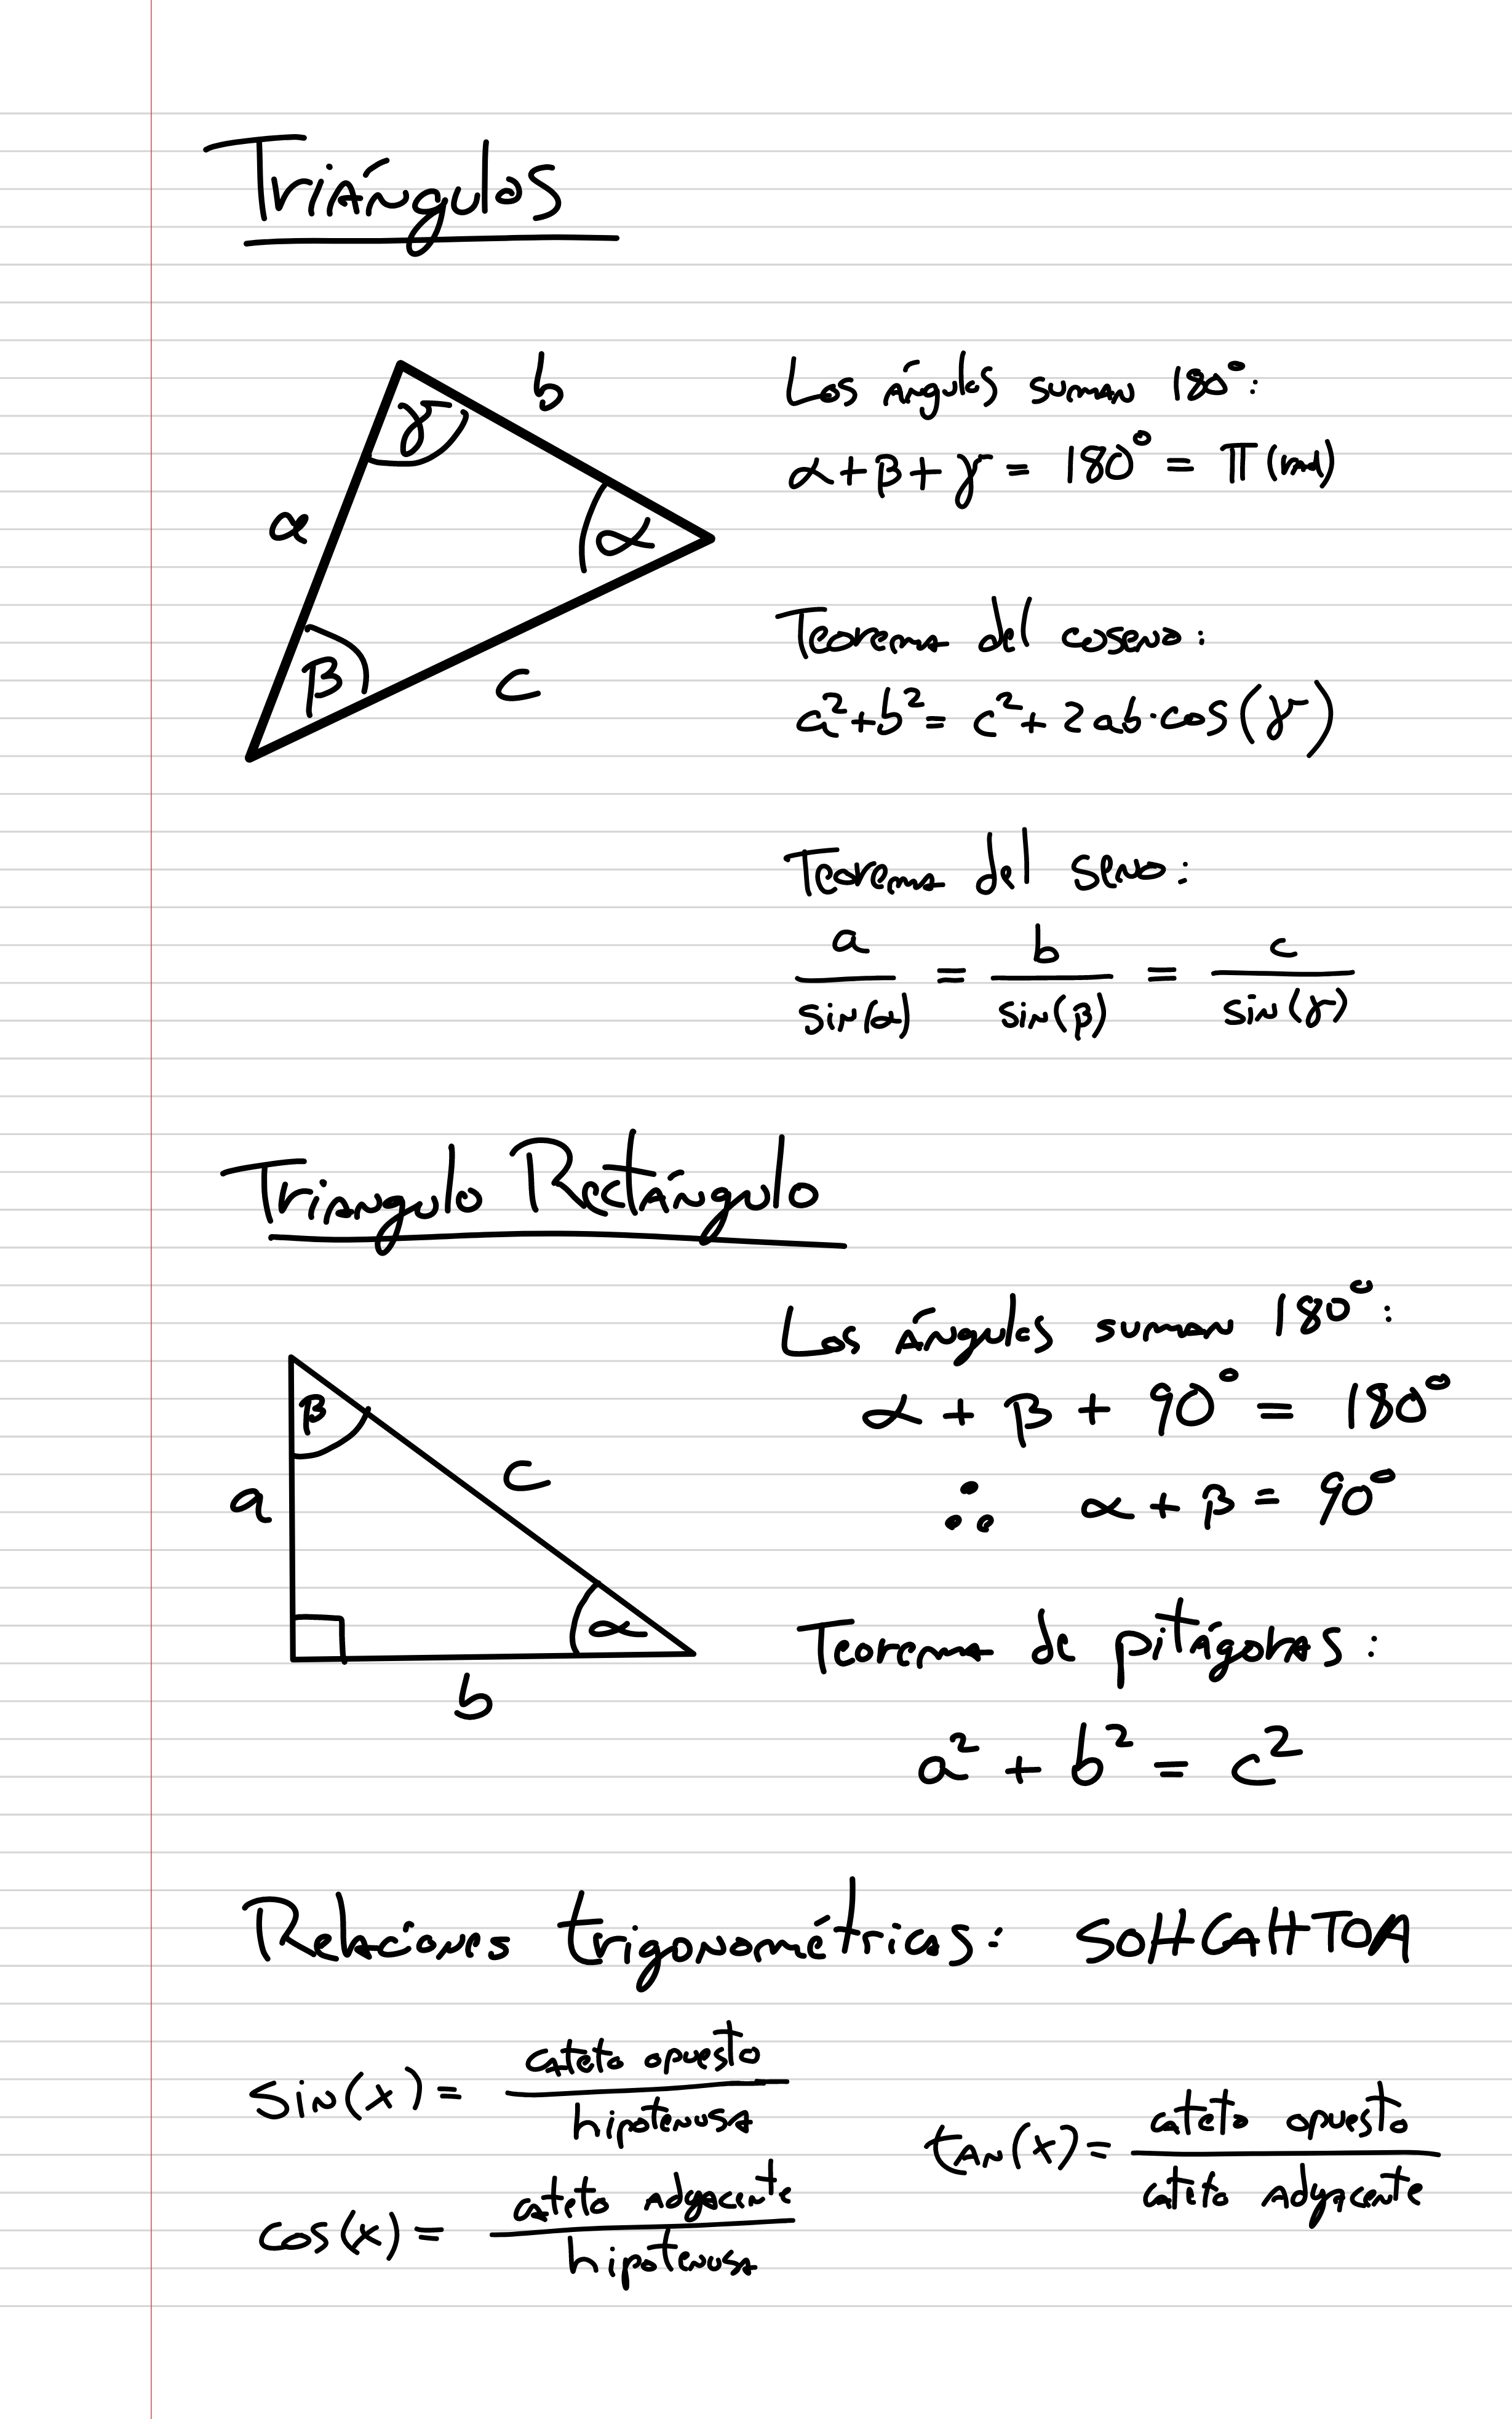 Triángulos
b
γ
α
a
β
c
Los ángulos suman 180°:
α + β + γ = 180° = π (rad)
Teorema del coseno:
a² + b² = c² + 2ab · cos(γ)
Teorema del seno:
a/sin(α) = b/sin(β) = c/sin(γ)
Triangulo Rectángulo
β
c
a
α
b
Los ángulos suman 180°:
α + β + 90° = 180°
∴ α + β = 90°
Teorema de pitágoras:
a² + b² = c²
Relaciones trigonométricas: SOHCAHTOA
sin(x) = cateto opuesto / hipotenusa
cos(x) = cateto adyacente / hipotenusa
tan(x) = cateto opuesto / cateto adyacente